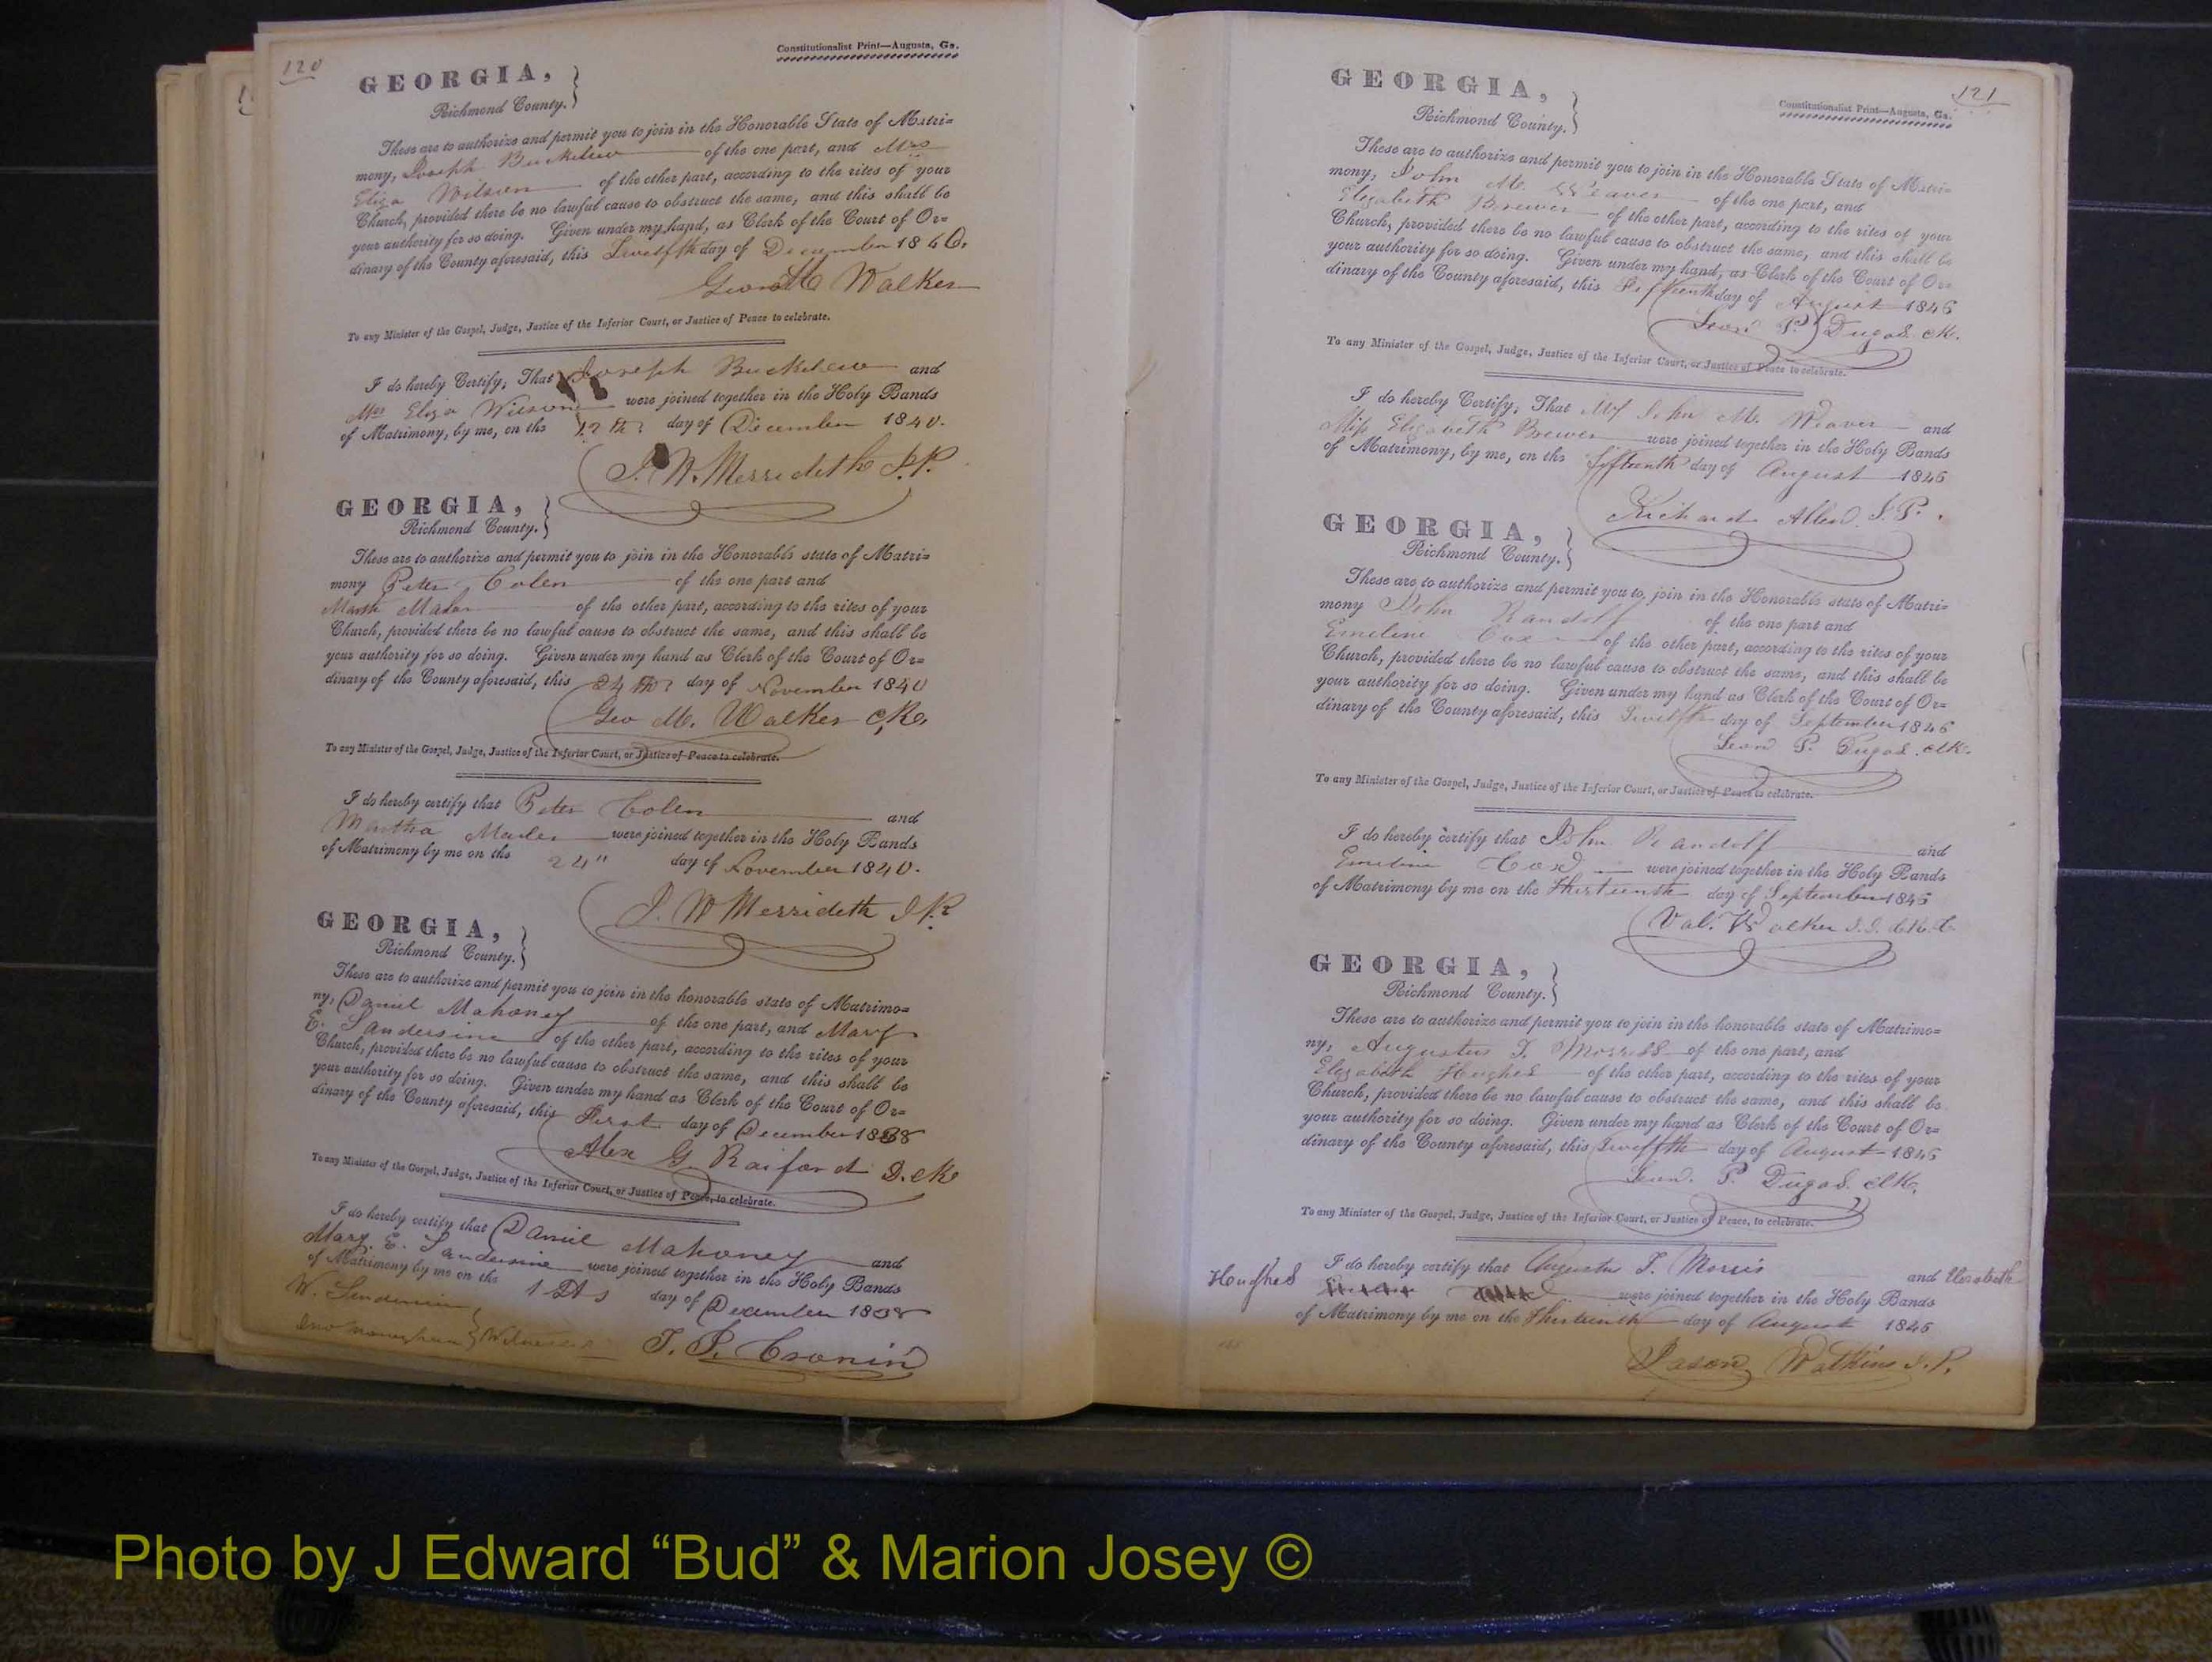 120
Constitutionalist Print—Augusta, Ga.
GEORGIA,
Richmond County.
These are to authorize and permit you to join in the Honorable State of Matri=
mony, Joseph Buckelew of the one part, and Mrs
Eliza Wilson of the other part, according to the rites of your
Church, provided there be no lawful cause to obstruct the same, and this shall be
your authority for so doing. Given under my hand, as Clerk of the Court of Or=
dinary of the County aforesaid, this Twelfth day of December 1840.
Geo M Walker
To any Minister of the Gospel, Judge, Justice of the Inferior Court, or Justice of Peace to celebrate.
I do hereby Certify, That Joseph Buckelew and
Mrs Eliza Wilson were joined together in the Holy Bands
of Matrimony, by me, on the 12th day of December 1840.
J. W. Merrideth J.P.
GEORGIA,
Richmond County.
These are to authorize and permit you to join in the Honorable state of Matri=
mony Peter Colen of the one part and
of the other part, according to the rites of your
Church, provided there be no lawful cause to obstruct the same, and this shall be
your authority for so doing. Given under my hand as Clerk of the Court of Or=
dinary of the County aforesaid, this 24th day of November 1840
Geo M. Walker Clk.
To any Minister of the Gospel, Judge, Justice of the Inferior Court, or Justice of Peace to celebrate.
I do hereby certify that Peter Colen and
Martha were joined together in the Holy Bands
of Matrimony by me on the 24" day of November 1840.
J. W Merrideth J.P.
GEORGIA,
Richmond County.
These are to authorize and permit you to join in the honorable state of Matrimo=
ny, Daniel Mahoney of the one part, and Mary
E. Sandersine of the other part, according to the rites of your
Church, provided there be no lawful cause to obstruct the same, and this shall be
your authority for so doing. Given under my hand as Clerk of the Court of Or=
dinary of the County aforesaid, this First day of December 1838
Alex G. Raiford D. Clk
To any Minister of the Gospel, Judge, Justice of the Inferior Court, or Justice of Peace, to celebrate.
I do hereby certify that Daniel Mahoney and
Mary E. Sandersine were joined together in the Holy Bands
of Matrimony by me on the 1st day of December 1838
W.
Witnesses
T. P. Cronin
121
GEORGIA,
Constitutionalist Print—Augusta, Ga.
Richmond County.
These are to authorize and permit you to join in the Honorable State of Matri=
mony, John M. Weaver of the one part, and
Elizabeth Brewer of the other part, according to the rites of your
Church, provided there be no lawful cause to obstruct the same, and this shall be
your authority for so doing. Given under my hand, as Clerk of the Court of Or=
dinary of the County aforesaid, this Fifteenth day of August 1846
Leon P. Dugas. Clk.
To any Minister of the Gospel, Judge, Justice of the Inferior Court, or Justice of Peace to celebrate.
I do hereby Certify, That Mr John M. Weaver and
Miss Elizabeth Brewer were joined together in the Holy Bands
of Matrimony, by me, on the fifteenth day of August 1846
Richard Allen J.P.
GEORGIA,
Richmond County.
These are to authorize and permit you to join in the Honorable state of Matri=
mony John Randolf of the one part and
Emeline Cox of the other part, according to the rites of your
Church, provided there be no lawful cause to obstruct the same, and this shall be
your authority for so doing. Given under my hand as Clerk of the Court of Or=
dinary of the County aforesaid, this Twelfth day of September 1846
Leon P. Dugas. Clk.
To any Minister of the Gospel, Judge, Justice of the Inferior Court, or Justice of Peace to celebrate.
I do hereby certify that John Randolf and
Emeline Cox were joined together in the Holy Bands
of Matrimony by me on the Thirteenth day of September 1846
Val. Walker
GEORGIA,
Richmond County.
These are to authorize and permit you to join in the honorable state of Matrimo=
ny, Augustus T. Morriss of the one part, and
Elizabeth Hughes of the other part, according to the rites of your
Church, provided there be no lawful cause to obstruct the same, and this shall be
your authority for so doing. Given under my hand as Clerk of the Court of Or=
dinary of the County aforesaid, this Twelfth day of August 1846
Leon. P. Dugas. Clk.
To any Minister of the Gospel, Judge, Justice of the Inferior Court, or Justice of Peace, to celebrate.
I do hereby certify that Augustus T. Morris and Elizabeth
Houghes were joined together in the Holy Bands
of Matrimony by me on the Thirteenth day of August 1846
Jason Watkins J.P.
Photo by J Edward “Bud” & Marion Josey ©